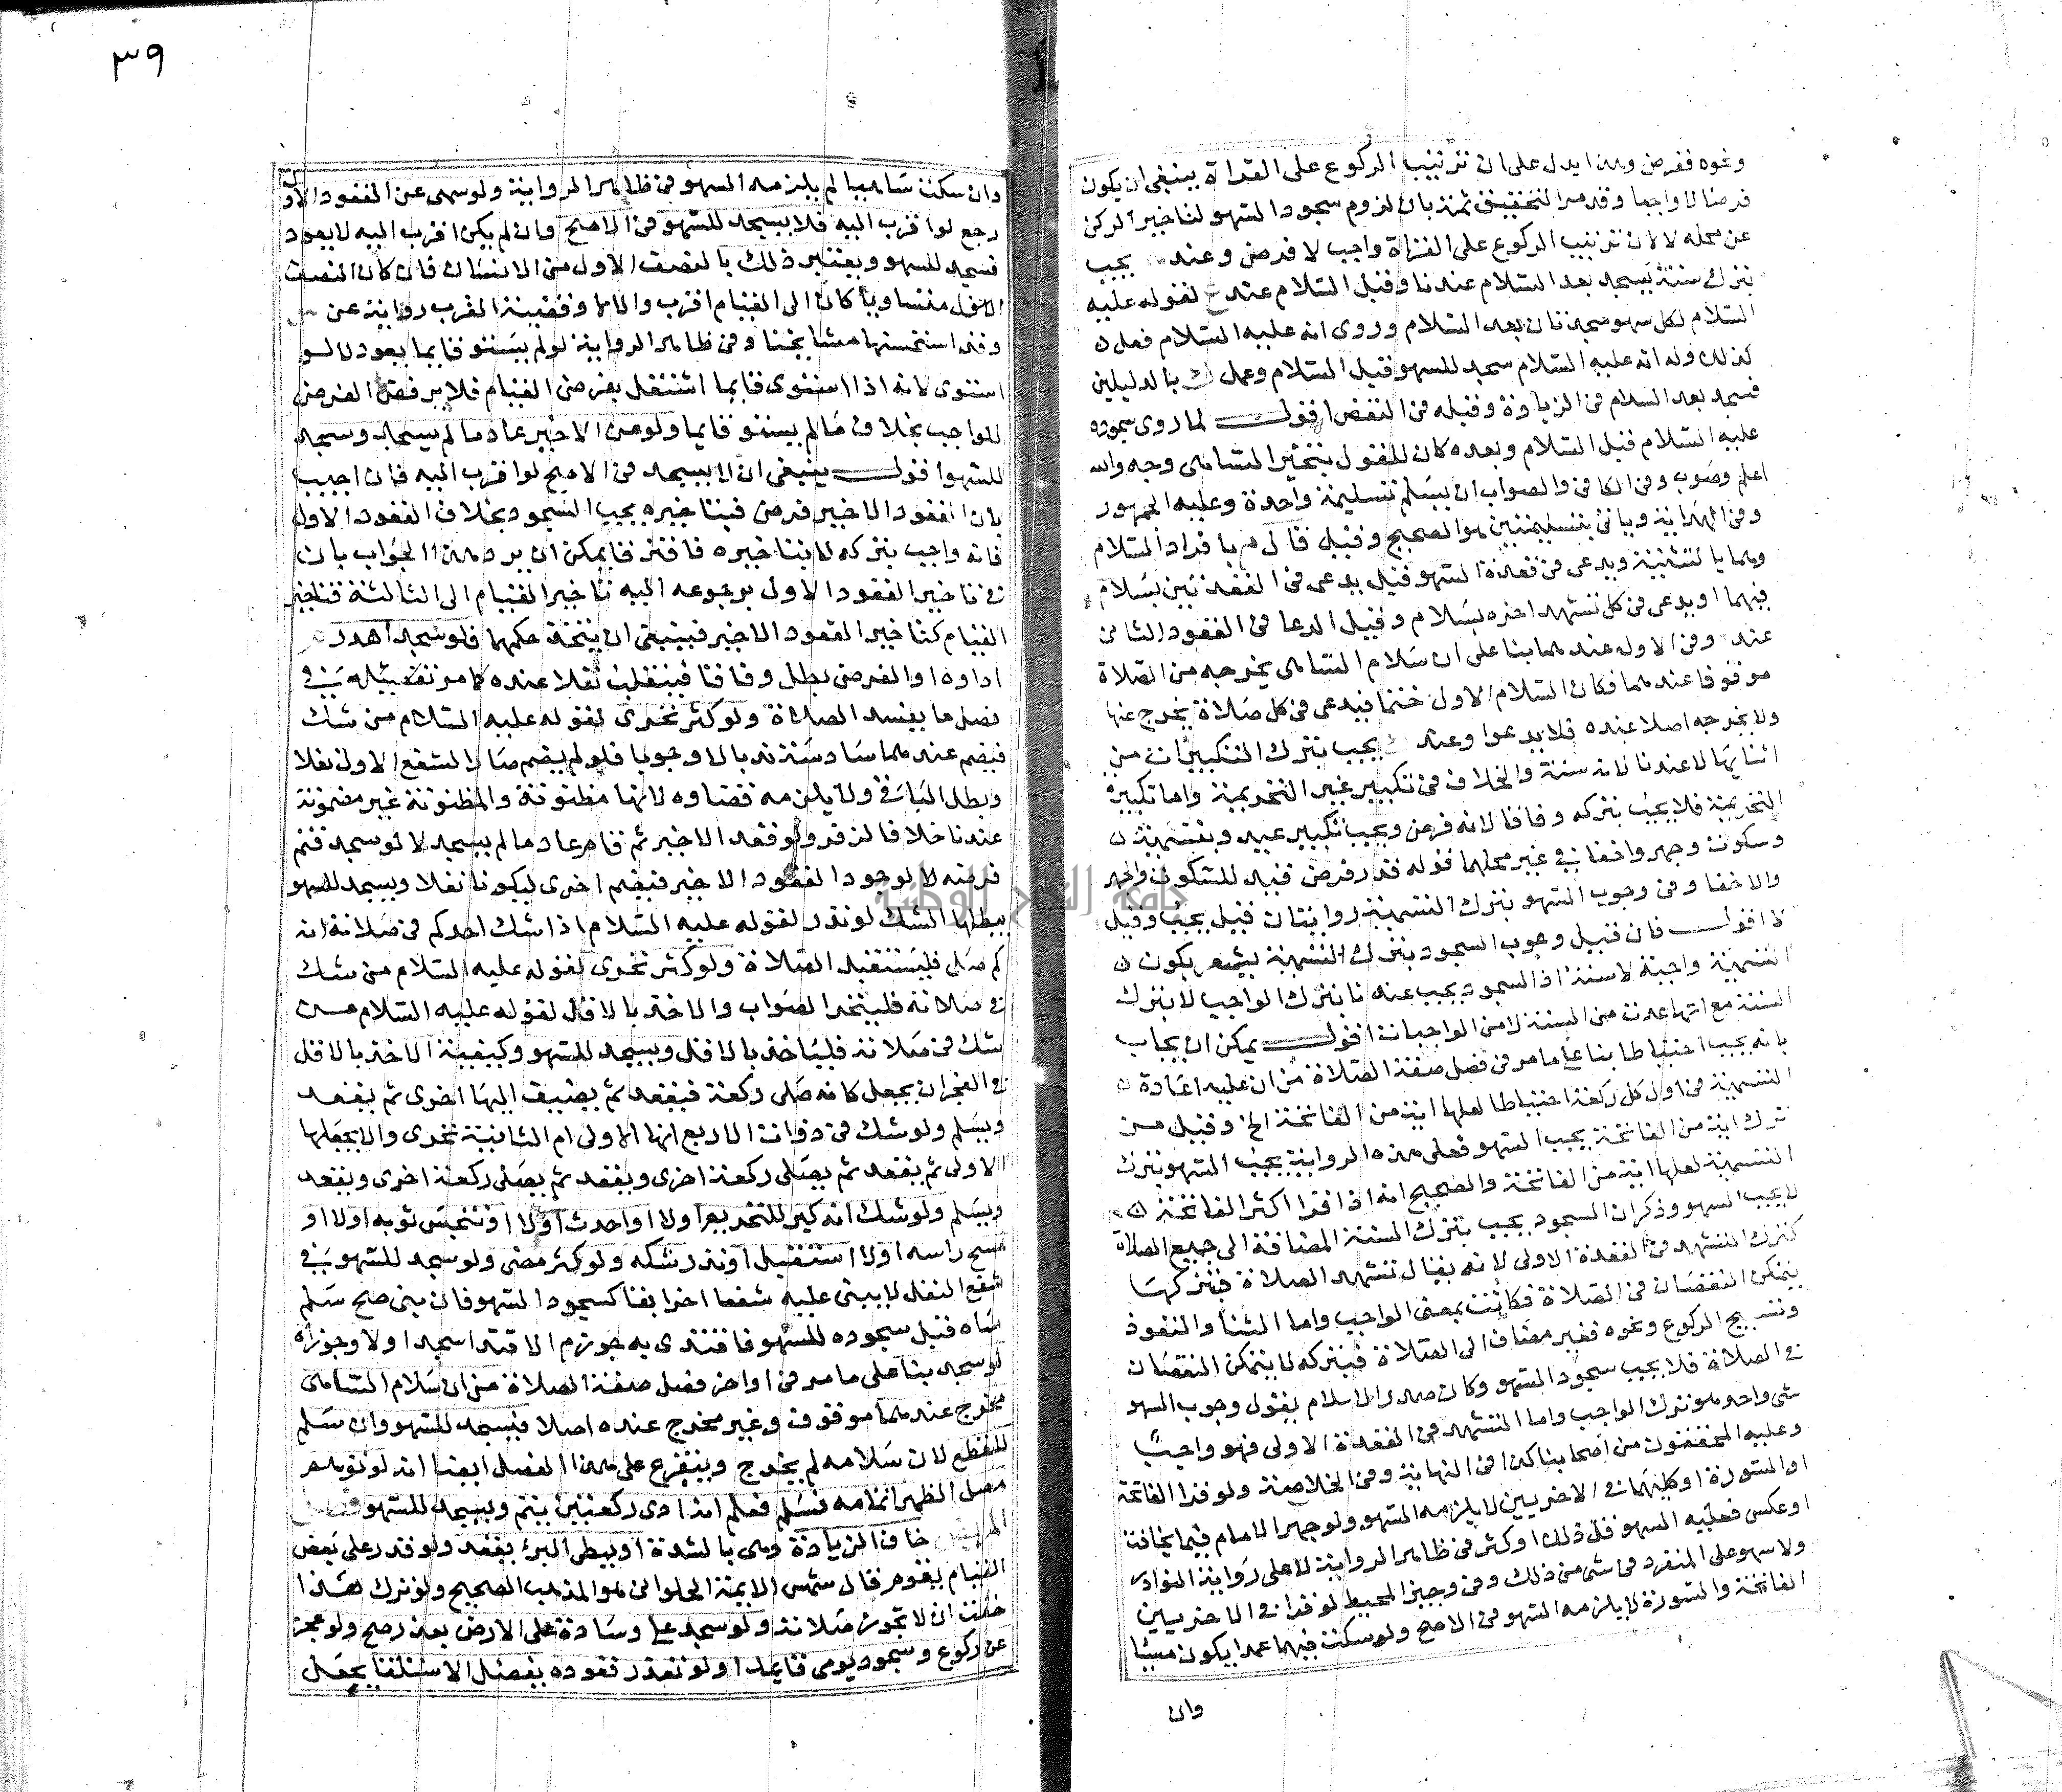 ونحوه ففرض وهذا يدل على ان ترتيب الركوع على القراة ينبغى ان يكون
فرضا لا واجبا وقد مر التحقيق ثمة بان لزوم سجود السهو لتاخير الركن
عن محله لا لان ترتيب الركوع على القراة واجب لا فرض وعند يجب
بترك سنة يسجد بعد السلام عندنا وقبل السلام عند لقوله عليه
السلام لكل سهو سجدتان بعد السلام وروى انه عليه السلام فعل
كذلك وله انه عليه السلام سجد للسهو قبل السلام وعمل ك بالدليلين
فسجد بعد السلام فى الزيادة وقبله فى النقص اقول لما روى سجوده
عليه السلام قبل السلام وبعده كان للقول بتخيير الساهى وجه والله
اعلم وصوب وفى الكافى والصواب ان يسلم تسليمة واحدة وعليه الجمهور
وفى الهداية وياتى بتسليمتين هو الصحيح وقيل قال م بافراد السلام
وهما بالتثنية ويدعى فى قعدة السهو قيل يدعى فى القعدتين بسلام
فيهما او يدعى فى كل تشهد اخره بسلام وقيل الدعا فى القعود الثانى
عند وفى الاول عندهما بنا على ان سلام الساهى يخرجه من الصلاة
موقوفا عندهما فكان السلام الاول ختما فيدعى فى كل صلاة يخرج عنها
ولا يخرجه اصلا عنده فلا يدعوا وعند ك يجب بترك التكبيرات من
اثنايها لا عندنا لانه سنة والخلاف فى تكبير غير التحريمة واما تكبيرة
التحريمة فلا يجب بتركه وفاقا لانه فرض ويجب تكبير عيد وبتسمية
وسكوت وجهر واخفا فى غير محلها قوله قدر فرض قيد للسكوت والجهر
والاخفا وفى وجوب السهو بترك التسمية روايتان قيل يجب وقيل
لا اقول فان قيل وجوب السجود بترك التسمية يشعر بكون
التسمية واجبة لا سنة اذ السجود يجب عندنا بترك الواجب لا بترك
السنة مع انها عدت من السنة لا من الواجبات اقول يمكن ان يجاب
بانه يجب احتياطا بنا على ما مر فى فصل صفة الصلاة من ان عليه اعادة
التسمية فى اول كل ركعة احتياطا لعلها اية من الفاتحة الخ وقيل من
ترك اية من الفاتحة يجب السهو فعلى هذه الرواية يجب السهو بترك
التسمية لعلها اية من الفاتحة والصحيح انه اذا قرا اكثر الفاتحة
لا يجب السهو وذكر ان السجود يجب بترك السنة المضافة الى جميع الصلاة
كترك التشهد فى القعدة الاولى لانه يقال تشهد الصلاة فبتركها
يتمكن النقصان فى الصلاة فكانت بمعنى الواجب واما الثنا والتعوذ
وتسبيح الركوع ونحوه فغير مضاف الى الصلاة فبتركه لا يتمكن النقصان
فى الصلاة فلا يجب سجود السهو وكان صدر الاسلام يقول وجوب السهو
شى واحد هو ترك الواجب واما التشهد فى القعدة الاولى فهو واجب
وعليه المحققون من اصحابنا كذا فى النهاية وفى الخلاصة ولو قرا الفاتحة
او السورة او كليهما فى الاخريين لا يلزمه السهو ولو جهر الامام فيما يخافت
او عكس فعليه السهو قل ذلك او كثر فى ظاهر الرواية لا على رواية النوادر
ولا سهو على المنفرد فى شى من ذلك وفى وجيز المحيط لو قرا فى الاخريين
الفاتحة والسورة لا يلزمه السهو فى الاصح ولو سكت فيهما عمدا يكون مسيئا
وان
٣٩
وان سكت ساهيا لم يلزمه السهو فى ظاهر الرواية ولو سهى عن القعود الاول
رجع لو اقرب اليه فلا يسجد للسهو فى الاصح وان لم يكن اقرب اليه لا يعود
فسجد للسهو ويعتبر ذلك بالنصف الاول من الانسان فان كان النصف
الاسفل مستاويا كان الى القيام اقرب والا لا وفقيبة المقرب رواية عن س
وقد استحسنها مشايخنا وفى ظاهر الرواية لو لم يستو قايما يعود لا لو
استوى لانه اذا استوى قايما اشتغل بفرض القيام فلا يرفض الفرض
للواجب بخلاف ما لم يستو قايما ولو عن الاخير عاد ما لم يسجد وسجد
للسهو اقول ينبغى ان لا يسجد فى الاصح لو اقرب اليه فان اجيب
بان القعود الاخير فرض فبتاخيره يجب السجود بخلاف القعود الاول
فانه واجب بتركه لا بتاخيره فافترقا يمكن ان يرد هذا الجواب بان
فى تاخير القعود الاول برجوعه اليه تاخير القيام الى الثالثة فتاخير
القيام كتاخير القعود الاخير فينبغى ان يتحد حكمهما فلو سجد اهدر
اداوه والفرض بطل وفاقا فينقلب نفلا عنده كما مر تفصيله فى
فصل ما يفسد الصلاة ولو كثر تحرى لقوله عليه السلام من شك
فيضم عندهما سادسة ندبا لا وجوبا فلو لم يضم صار الشفع الاول نفلا
وبطل الباقى ولا يلزمه قضاوه لانها مظنونة والمظنونة غير مضمونة
عندنا خلافا لزفر ولو قعد الاخير ثم قام عاد ما لم يسجد لا لو سجد فتم
فرضه لا لوجود القعود الاخير فيضم اخرى ليكونا نفلا ويسجد للسهو
يبطلها الشك لو ندر لقوله عليه السلام اذا شك احدكم فى صلاته انه
كم صلى فليستقبل الصلاة ولو كثر تحرى لقوله عليه السلام من شك
فى صلاته فليتحر الصواب والا خذ بالاقل لقوله عليه السلام من
شك فى صلاته فلياخذ بالاقل ويسجد للسهو وكيفية الاخذ بالاقل
فى الفجر ان يجعل كانه صلى ركعة فيقعد ثم يضيف اليها اخرى ثم يقعد
ويسلم ولو شك فى ذوات الاربع انها الاولى ام الثانية تحرى والا يجعلها
الاولى ثم يقعد ثم يصلى ركعة اخرى ويقعد ثم يصلى ركعة اخرى ويقعد
ويسلم ولو شك انه كبر للتحريم اولا او احدث اولا او تنجس ثوبه اولا او
مسح راسه اولا استقبل او ندر شكه ولو كثر مضى ولو سجد للسهو فى
شفع النفل لا يبنى عليه شفعا اخر ابقا كسجود السهو فان بنى صح سلم
ساه قبل سجوده للسهو فاقتدى به جوز م الاقتدا سجد اولا وجوزاه
لو سجد بنا على ما مر فى اواخر فصل صفة الصلاة من ان سلام الساهى
مخرج عندهما موقوف وغير مخرج عنده اصلا فيسجد للسهو وان سلم
للقطع لان سلامه لم يخرج ويتفرع على هذا الفصل ايضا انه لو توهم
مصلى الظهر اتمامه فسلم فعلم انه ادى ركعتين يتم ويسجد للسهو فصل
المريض خاف الزيادة وهى بالشدة او يبطى البرء يقعد ولو قدر على بعض
القيام يقوم قال شمس الايمة الحلوانى هو المذهب الصحيح ولو ترك هذا
خفت ان لا تجوز صلاته ولو سجد على وسادة على الارض بعذر صح ولو عجز
عن ركوع وسجود يومى قاعدا ولو تعذر قعوده يفضل الاستلقا بجعل
جامعة النجاح الوطنية